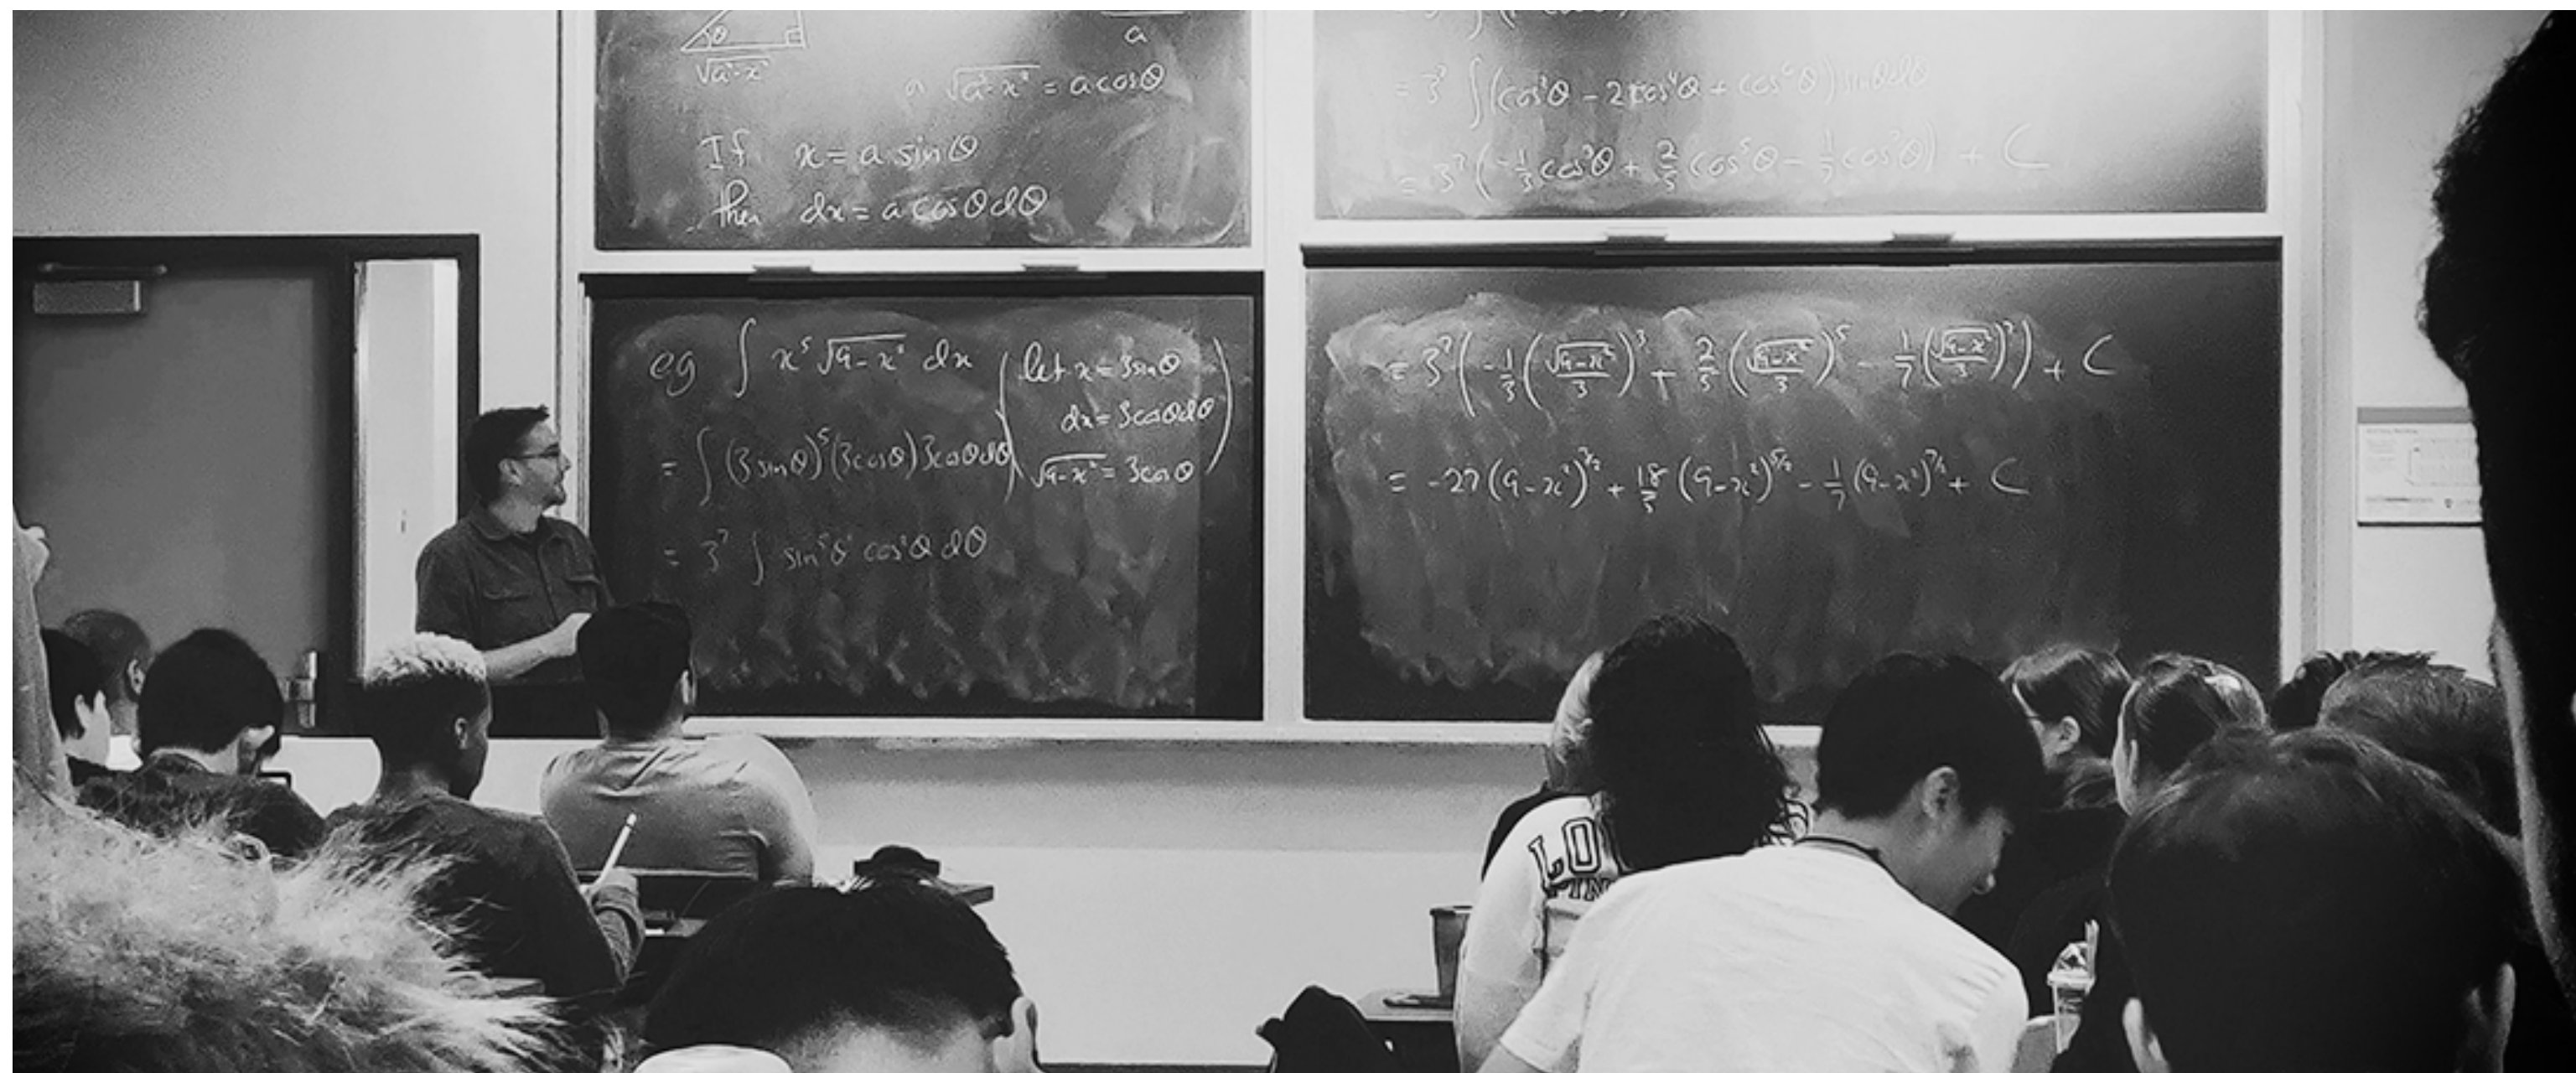 θ
√a²-x²
a
√a²-x² = a cosθ
If x = a sinθ
then dx = a cosθdθ
eg ∫ x⁵ √9-x² dx
(let x = 3sinθ
dx = 3cosθdθ
√9-x² = 3cosθ)
= ∫ (3 sinθ)⁵ (3cosθ) 3cosθdθ
= 3⁷ ∫ sin⁵θ cos²θ dθ
= 3⁷ ∫ (cos²θ - 2cos⁴θ + cos⁶θ) sinθdθ
= 3⁷ (-1/3 cos³θ + 2/5 cos⁵θ - 1/7 cos⁷θ) + C
= 3⁷ (-1/3 (√9-x²/3)³ + 2/5 (√9-x²/3)⁵ - 1/7 (√9-x²/3)⁷) + C
= -27 (9-x²)^3/2 + 18/5 (9-x²)^5/2 - 1/7 (9-x²)^7/2 + C